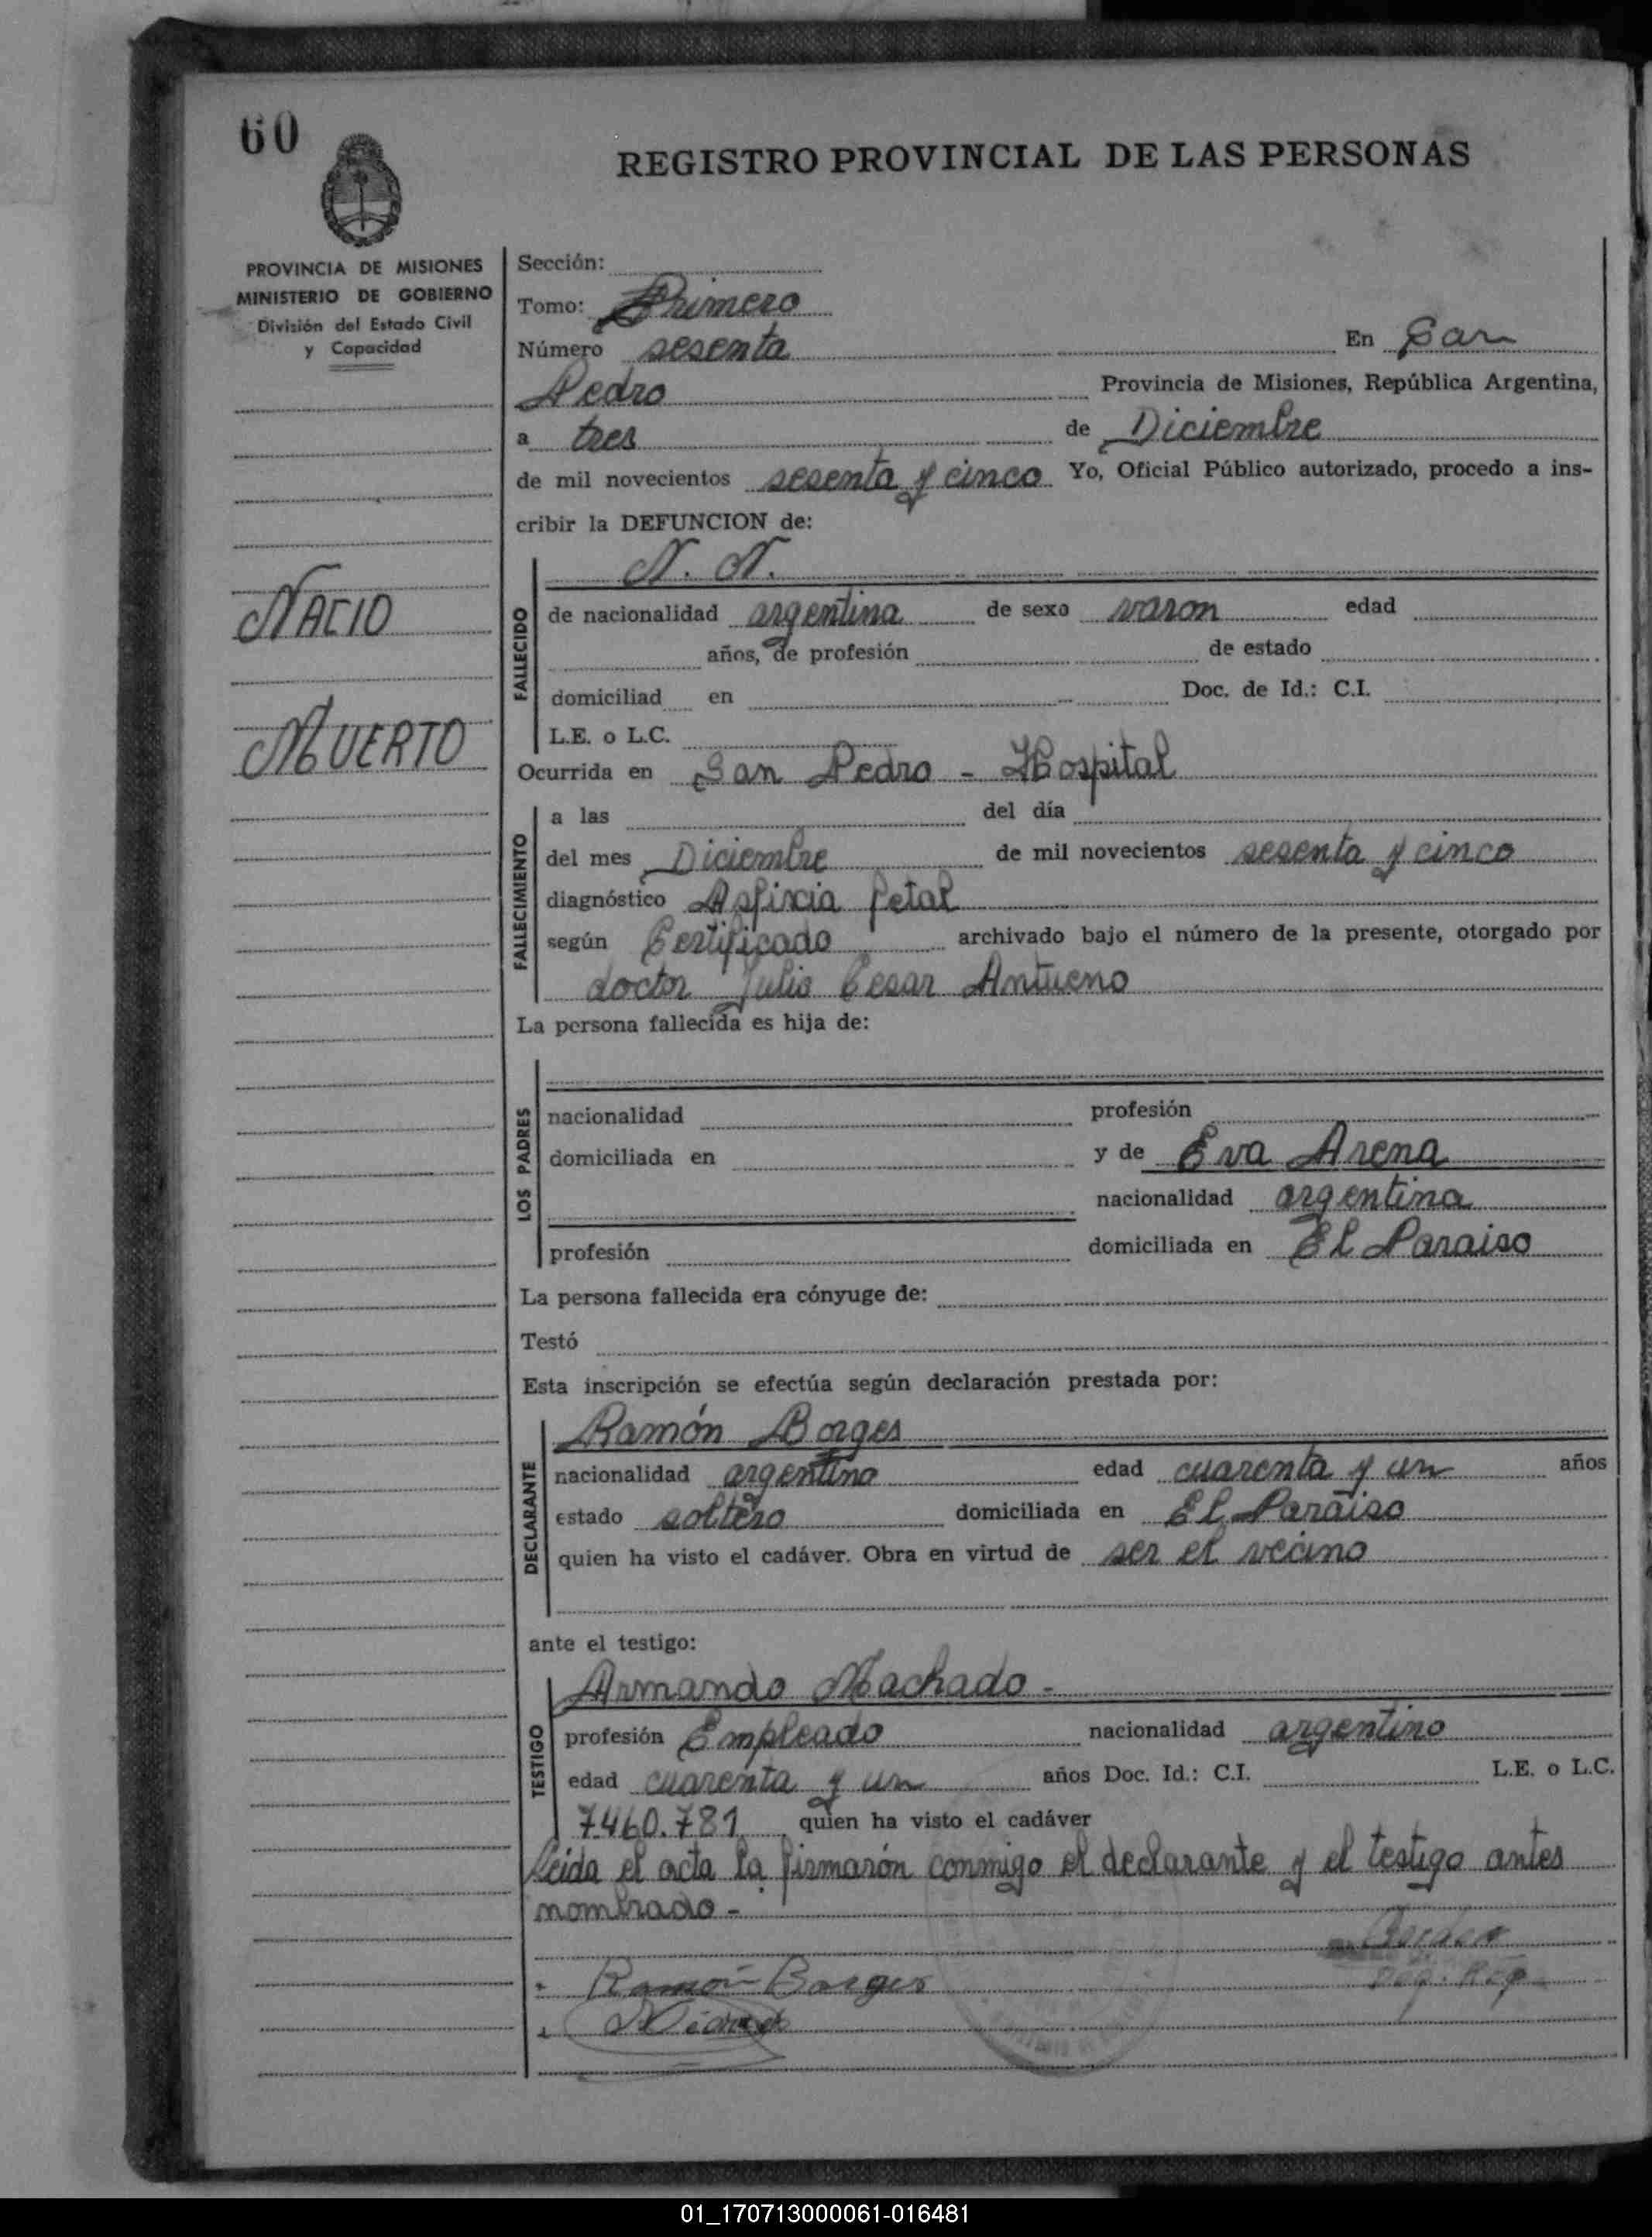 60
REGISTRO PROVINCIAL DE LAS PERSONAS
PROVINCIA DE MISIONES
MINISTERIO DE GOBIERNO
División del Estado Civil
y Capacidad
NACIO
MUERTO
Sección:
Tomo: Primero
Número sesenta En San
Pedro Provincia de Misiones, República Argentina,
a tres de Diciembre
de mil novecientos sesenta y cinco Yo, Oficial Público autorizado, procedo a ins-
cribir la DEFUNCION de:
FALLECIDO
N. N.
de nacionalidad argentina de sexo varon edad
años, de profesión de estado
domiciliad en Doc. de Id.: C.I.
L.E. o L.C.
Ocurrida en San Pedro - Hospital
FALLECIMIENTO
a las del día
del mes Diciembre de mil novecientos sesenta y cinco
diagnóstico Asfixia fetal
según Certificado archivado bajo el número de la presente, otorgado por
doctor Julio Cesar Antueno
La persona fallecida es hija de:
LOS PADRES
nacionalidad profesión
domiciliada en y de Eva Arena
nacionalidad argentina
profesión domiciliada en El Paraiso
La persona fallecida era cónyuge de:
Testó
Esta inscripción se efectúa según declaración prestada por:
DECLARANTE
Ramón Borges
nacionalidad argentino edad cuarenta y un años
estado soltero domiciliada en El Paraiso
quien ha visto el cadáver. Obra en virtud de ser el vecino
ante el testigo:
TESTIGO
Armando Machado -
profesión Empleado nacionalidad argentino
edad cuarenta y un años Doc. Id.: C.I. L.E. o L.C.
7460.781 quien ha visto el cadáver
Leida el acta la firmarón conmigo el declarante y el testigo antes
nombrado -
Ramón Borges
01_170713000061-016481